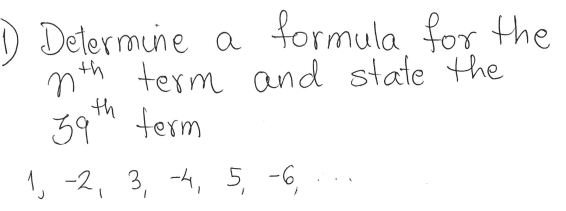 1) Determine a formula for the
nth term and state the
39th term
1, -2, 3, -4, 5, -6, ...